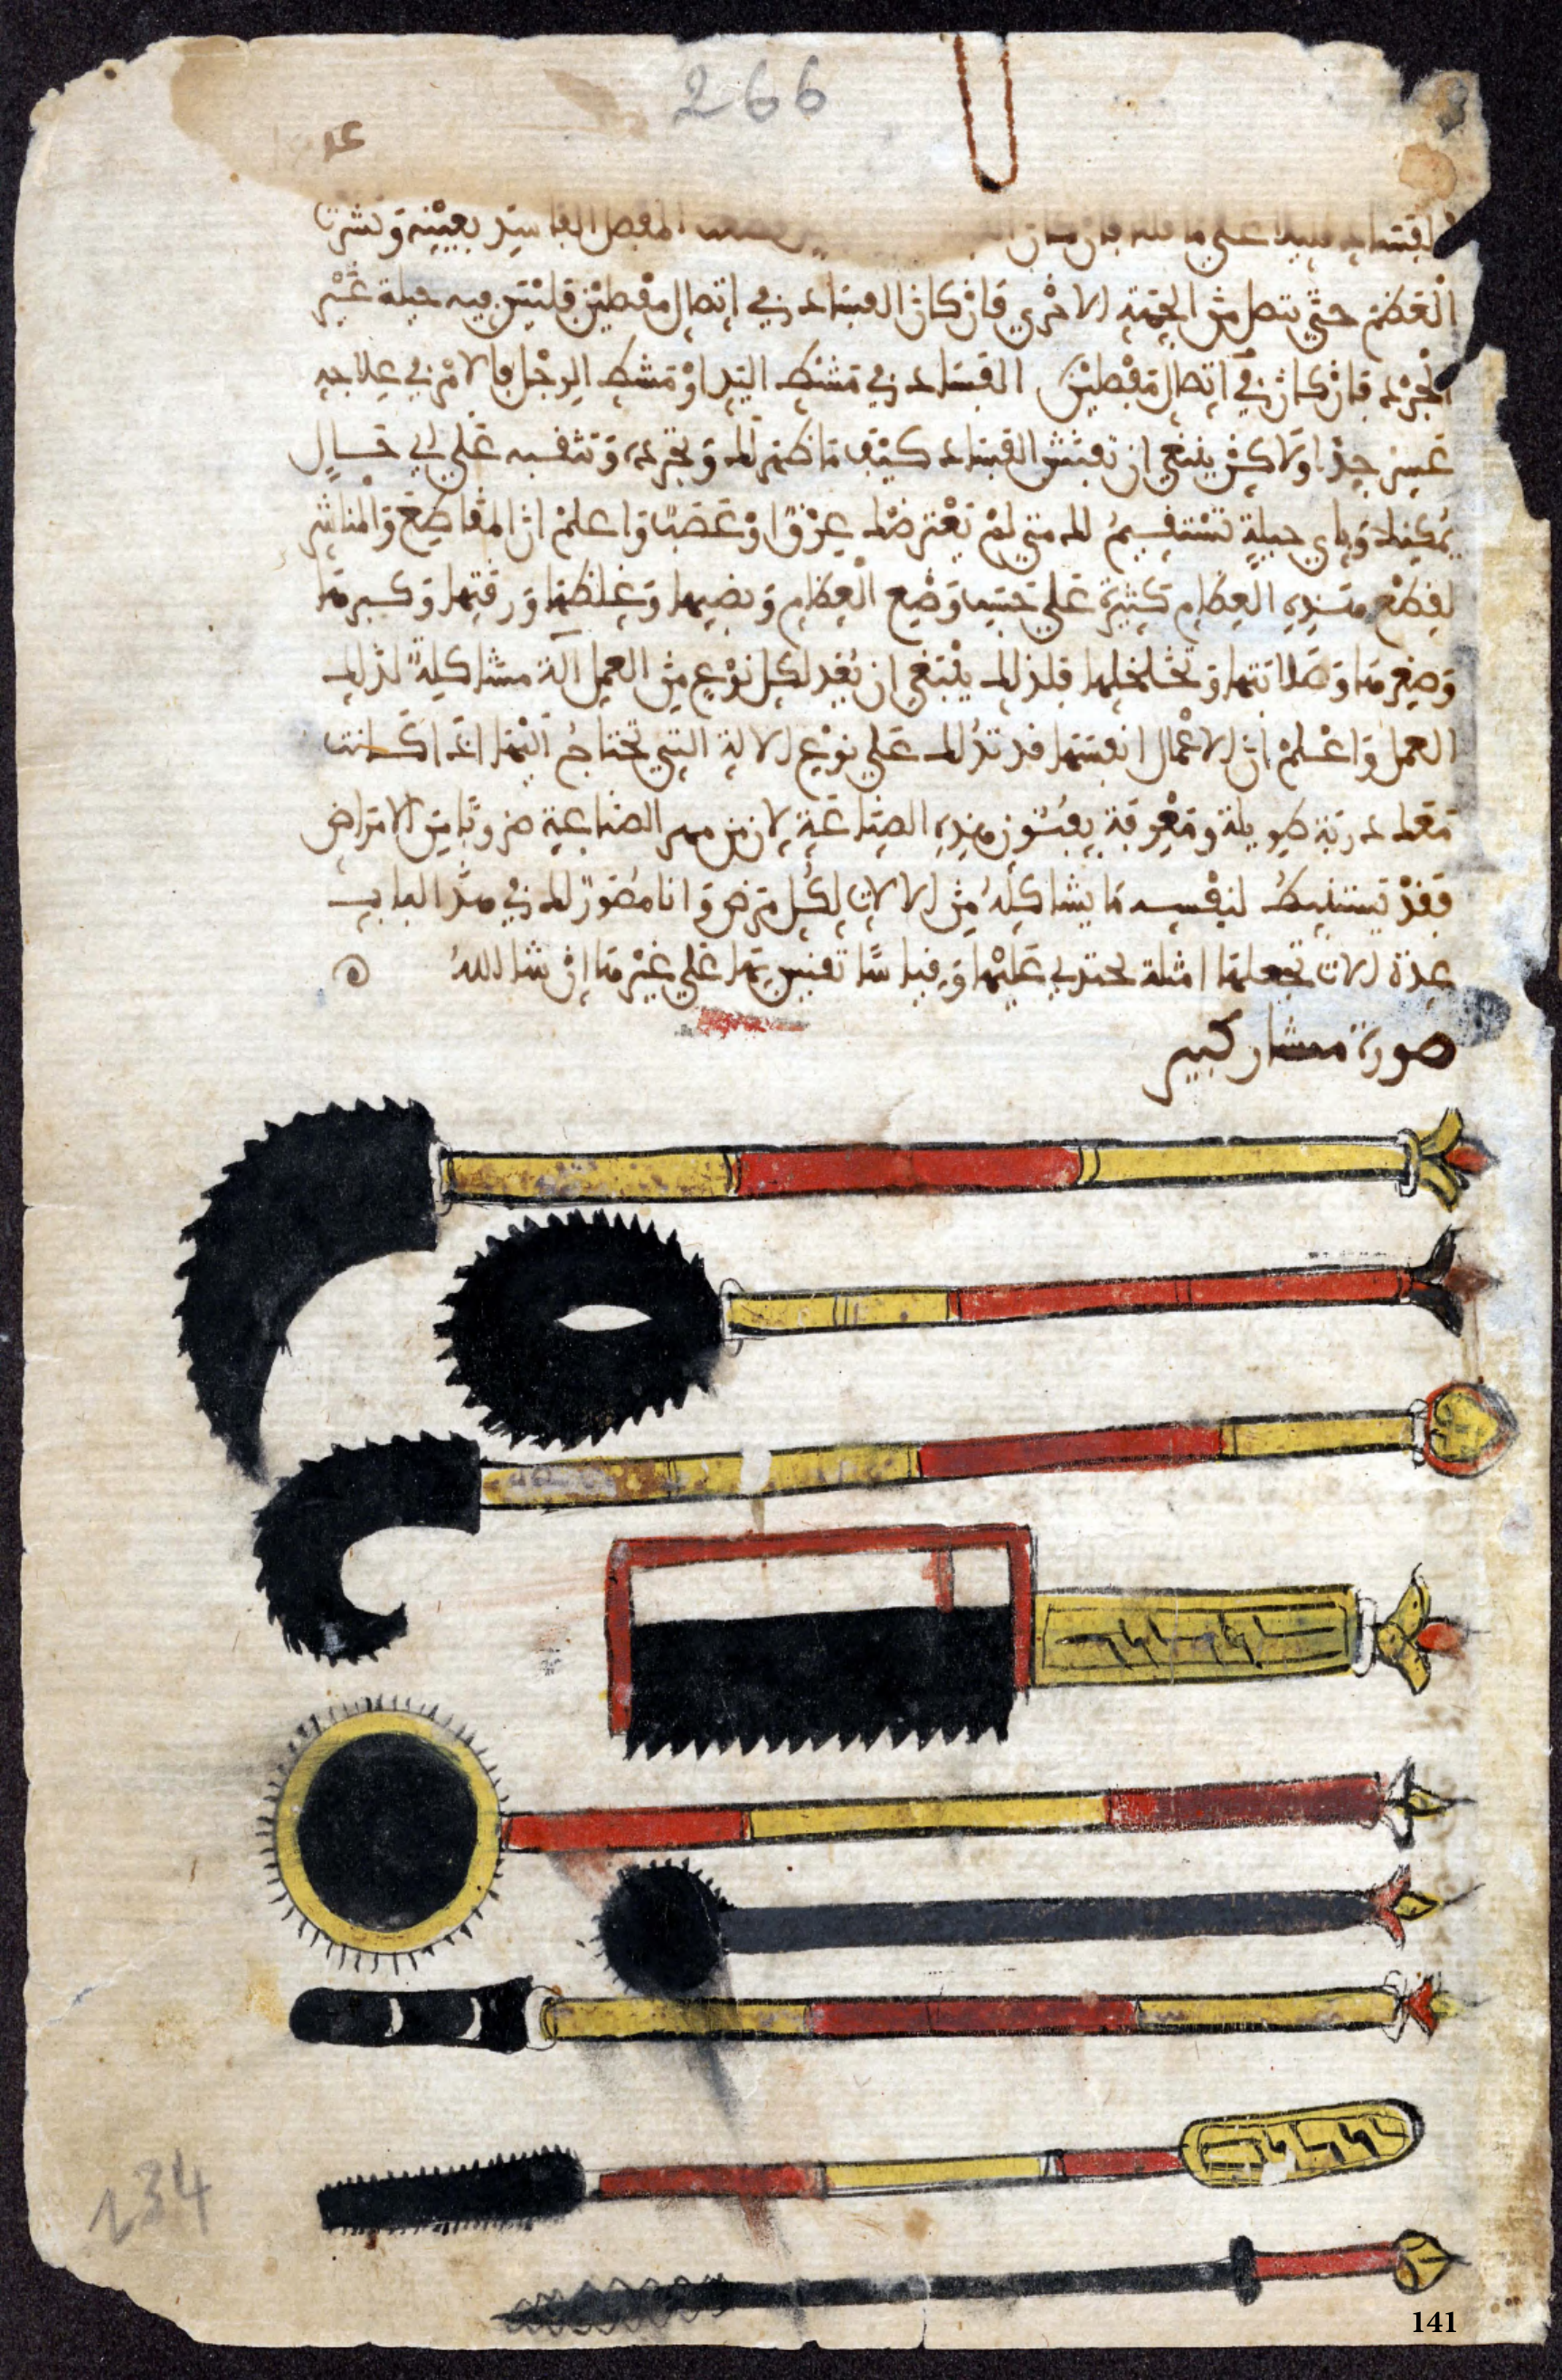 266
المفصل الفاسد بعينه وتنشر
الْعَظم حتى تتصل من الجهة الاخرى فان كان الفساد في اتصال مفصلين فليس فيه حيلة غير
الجرد فان كان في اتصال مفصلين الفساد في مشط اليد او مشط الرجل فالامر في علاجه
عسر جدا ولاكن ينبغي ان تفتش الفساد كيف ما ظهر لك وتجرده وتنقيه على اي حال
يمكنك وباي حيلة تستقيم لك متى لم تعترضك عرقا او عصبا واعلم ان المقاطع والمناشر
لقطع هذه العظام كثيرة على حسب وضع العظام ونصبها وغلظها ورقتها وكبرها
وصغرها وصلابتها وتخلخلها فلذلك ينبغي ان تعد لكل نوع من العمل آلة مشاكلة لذلك
العمل واعلم ان الاعمال انفسها قد تدلك على نوع الالة التي تحتاج اليها اذا كانت
معك دربة طويلة ومعرفة بفنون هذه الصناعة لان من مهر الصناعة ضروبا من الامراض
فقد يستنبط لنفسه ما يشاكله من الالات لكل مرض وانا مصور لك في هذا الباب
عدة الات تجعلها امثلة تحتذي عليها وقياسا تقيس بها على غيرها ان شا الله
صورة منشار كبير
134
141